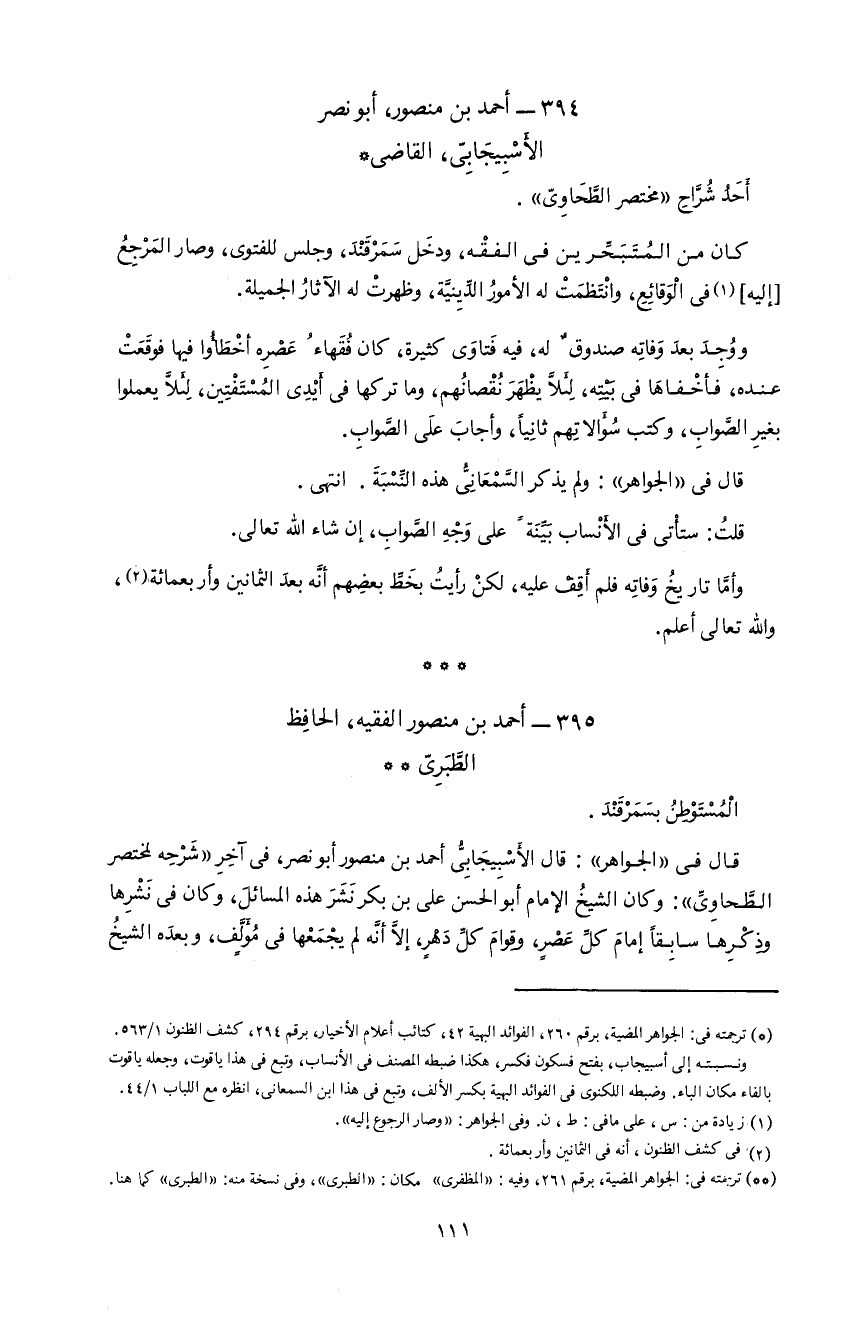 ٣٩٤ ــ أحمد بن منصور، أبو نصر
الأَسْبِيجَابِىّ، القاضى*
أَحَدُ شُرَّاحِ «مختصر الطَّحَاوِىّ» .
كان من المُتَبَحِّرين فى الفقْه، ودخَل سَمَرْقَنْدَ، وجلس للفتوى، وصار المَرْجِعُ
[إليه] (١) فى الْوَقائِعِ، وانْتَظمَتْ له الأمورُ الدِّينِيَّة، وظهرتْ له الآثارُ الجميلة.
ووُجِدَ بعدَ وَفاتِه صندوقٌ له، فيه فَتاوَى كثيرة، كان فُقَهاءُ عَصْرِه أخْطَأُوا فيها فوقَعَتْ
عنده، فأخْفاهَا فى بَيْتِه، لِئَلاَّ يظْهَرَ نُقْصانُهم، وما تركها فى أيْدِى المُسْتَفْتِين، لِئَلاَّ يعملوا
بغيرِ الصَّوابِ، وكتب سُؤَالاتِهم ثانِياً، وأجابَ علَى الصَّوابِ.
قال فى «الجواهر» : ولم يذكر السَّمْعَانِىُّ هذه النِّسْبَةَ . انتهى .
قلتُ: ستأتى فى الأَنْساب بَيِّنَةً على وَجْهِ الصَّوابِ، إن شاء الله تعالى.
وأمَّا تاريخُ وَفاتِه فلم أقِفْ عليه، لكنْ رأيتُ بخَطِّ بعضِهم أنَّه بعدَ الثمانين وأربعمائة(٢) ،
والله تعالى أعلم.
* * *
٣٩٥ ــ أحمد بن منصور الفقيه، الحافِظ
الطَّبَرِىّ * *
الْمُسْتَوْطِنُ بسَمَرْقَنْدَ .
قال فى «الجواهر» : قال الأَسْبِيجَابِىُّ أحمد بن منصور أبو نصر، فى آخِرِ «شَرْحِه لمختصر
الطَّحاوِىِّ»: وكان الشيخُ الإمام أبو الحسن على بن بكر نَشَرَ هذه المسائلَ، وكان فى نَشْرِها
وذِكْرِها سابِقاً إمامَ كلِّ عَصْرٍ، وقوامَ كلِّ دَهْرٍ، إلاَّ أنَّه لم يجْمَعْها فى مُؤَلَّفٍ، وبعدَه الشيخُ
(*) ترجمته فى: الجواهر المضية، برقم ٢٦٠، الفوائد البهية ٤٢، كتائب أعلام الأخيار، برقم ٢٩٤، كشف الظنون ٥٦٣/١.
ونسبته إلى أسبيجاب، بفتح فسكون فكسر، هكذا ضبطه المصنف فى الأنساب، وتبع فى هذا ياقوت، وجعله ياقوت
بالفاء مكان الباء. وضبطه اللكنوى فى الفوائد البهية بكسر الألف، وتبع فى هذا ابن السمعانى، انظره مع اللباب ٤٤/١.
(١) زيادة من : س ، على مافى : ط ، ن. وفى الجواهر : «وصار الرجوع إليه».
(٢) فى كشف الظنون ، أنه فى الثمانين وأربعمائة .
(**) ترجمته فى: الجواهر المضية، برقم ٢٦١، وفيه : «المظفرى» مكان : «الطبرى»، وفى نسخة منه: «الطبرى» كما هنا.
١١١